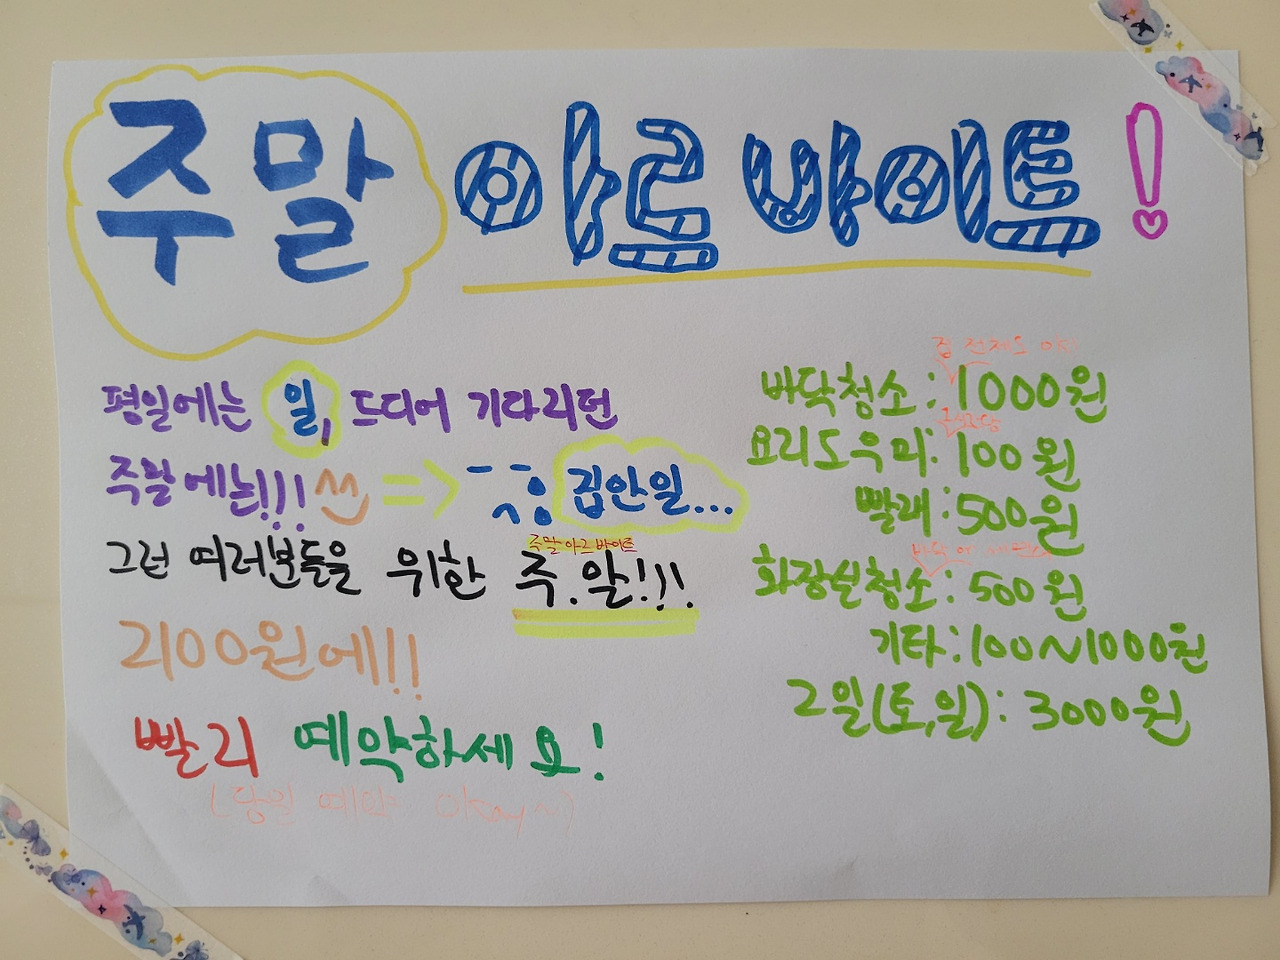 주말 아르바이트!
평일에는 일, 드디어 기다리던
주말에는!!! ^^ => 집안일...
주말 아르바이트
그런 여러분들을 위한 주.알!!!
2100원에!!
빨리 예약하세요!
(당일 예약 okay~)
집 전체도
바닥청소: 1000원
요리도우미: 100원
빨래: 500원
화장실청소: 500원
기타: 100~1000원
2일(토,일): 3000원